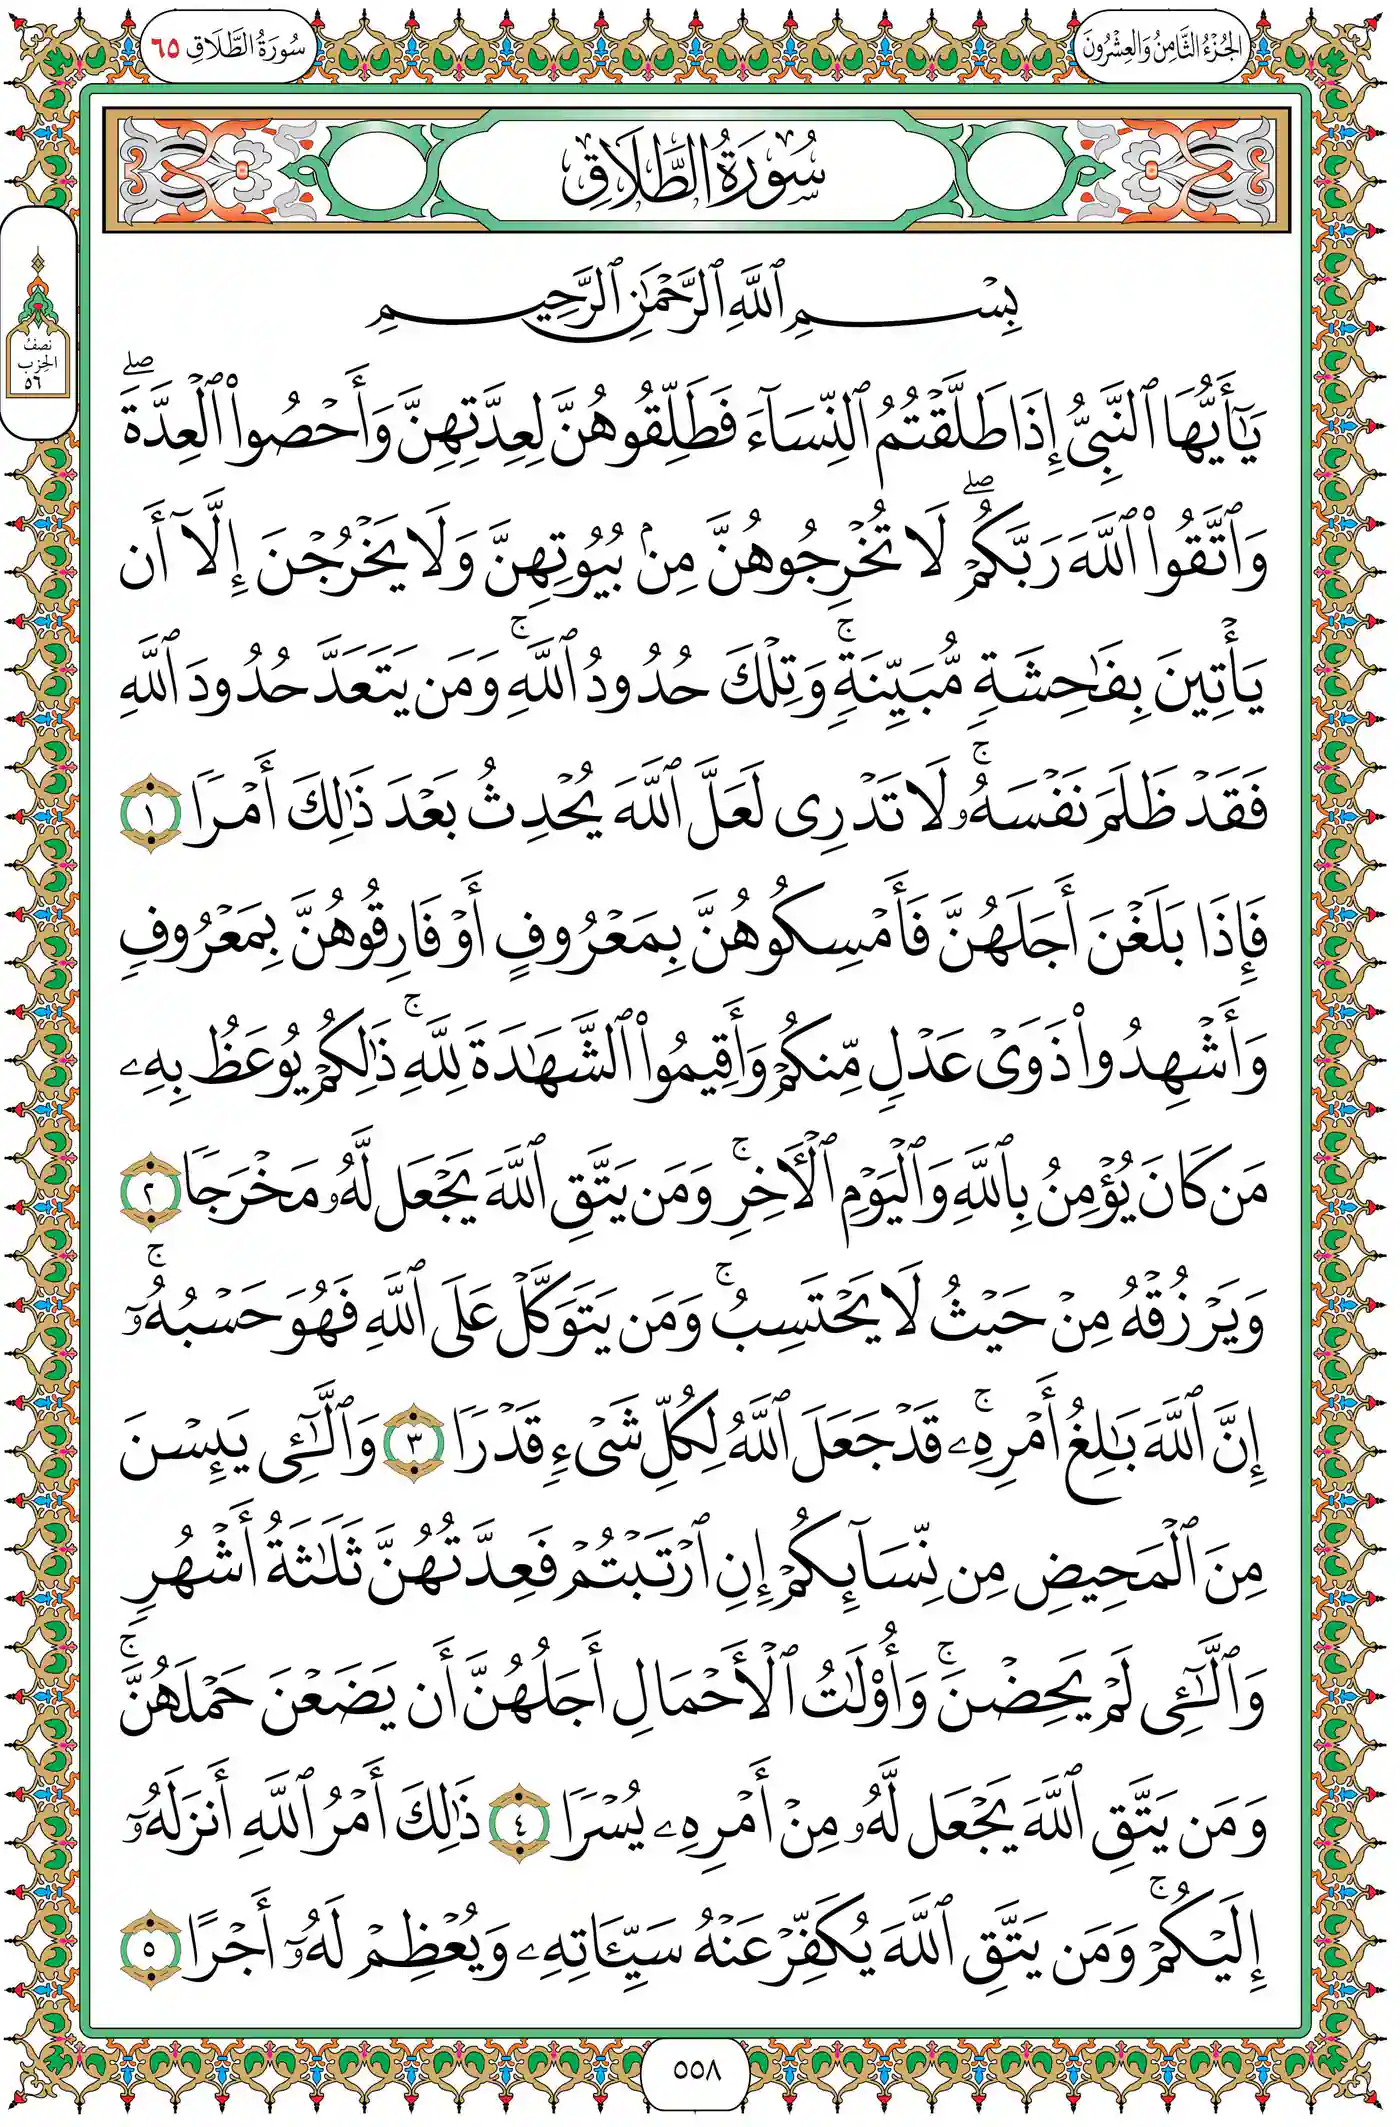 الجزء الثامن والعشرون
سورة الطلاق ٦٥
سُورَةُ الطَّلَاقِ
بِسْمِ ٱللَّهِ ٱلرَّحْمَٰنِ ٱلرَّحِيمِ
نصف
الحزب
٥٦
يَٰٓأَيُّهَا ٱلنَّبِىُّ إِذَا طَلَّقْتُمُ ٱلنِّسَآءَ فَطَلِّقُوهُنَّ لِعِدَّتِهِنَّ وَأَحْصُوا۟ ٱلْعِدَّةَ ۖ
وَٱتَّقُوا۟ ٱللَّهَ رَبَّكُمْ ۖ لَا تُخْرِجُوهُنَّ مِنۢ بُيُوتِهِنَّ وَلَا يَخْرُجْنَ إِلَّآ أَن
يَأْتِينَ بِفَٰحِشَةٍ مُّبَيِّنَةٍ ۚ وَتِلْكَ حُدُودُ ٱللَّهِ ۚ وَمَن يَتَعَدَّ حُدُودَ ٱللَّهِ
فَقَدْ ظَلَمَ نَفْسَهُۥ ۚ لَا تَدْرِى لَعَلَّ ٱللَّهَ يُحْدِثُ بَعْدَ ذَٰلِكَ أَمْرًا ١
فَإِذَا بَلَغْنَ أَجَلَهُنَّ فَأَمْسِكُوهُنَّ بِمَعْرُوفٍ أَوْ فَارِقُوهُنَّ بِمَعْرُوفٍ
وَأَشْهِدُوا۟ ذَوَىْ عَدْلٍ مِّنكُمْ وَأَقِيمُوا۟ ٱلشَّهَٰدَةَ لِلَّهِ ۚ ذَٰلِكُمْ يُوعَظُ بِهِۦ
مَن كَانَ يُؤْمِنُ بِٱللَّهِ وَٱلْيَوْمِ ٱلْءَاخِرِ ۚ وَمَن يَتَّقِ ٱللَّهَ يَجْعَل لَّهُۥ مَخْرَجًا ٢
وَيَرْزُقْهُ مِنْ حَيْثُ لَا يَحْتَسِبُ ۚ وَمَن يَتَوَكَّلْ عَلَى ٱللَّهِ فَهُوَ حَسْبُهُۥٓ ۚ
إِنَّ ٱللَّهَ بَٰلِغُ أَمْرِهِۦ ۚ قَدْ جَعَلَ ٱللَّهُ لِكُلِّ شَىْءٍ قَدْرًا ٣ وَٱلَّٰٓـِٔى يَئِسْنَ
مِنَ ٱلْمَحِيضِ مِن نِّسَآئِكُمْ إِنِ ٱرْتَبْتُمْ فَعِدَّتُهُنَّ ثَلَٰثَةُ أَشْهُرٍ
وَٱلَّٰٓـِٔى لَمْ يَحِضْنَ ۚ وَأُو۟لَٰتُ ٱلْأَحْمَالِ أَجَلُهُنَّ أَن يَضَعْنَ حَمْلَهُنَّ ۚ
وَمَن يَتَّقِ ٱللَّهَ يَجْعَل لَّهُۥ مِنْ أَمْرِهِۦ يُسْرًا ٤ ذَٰلِكَ أَمْرُ ٱللَّهِ أَنزَلَهُۥٓ
إِلَيْكُمْ ۚ وَمَن يَتَّقِ ٱللَّهَ يُكَفِّرْ عَنْهُ سَيِّـَٔاتِهِۦ وَيُعْظِمْ لَهُۥٓ أَجْرًا ٥
٥٥٨